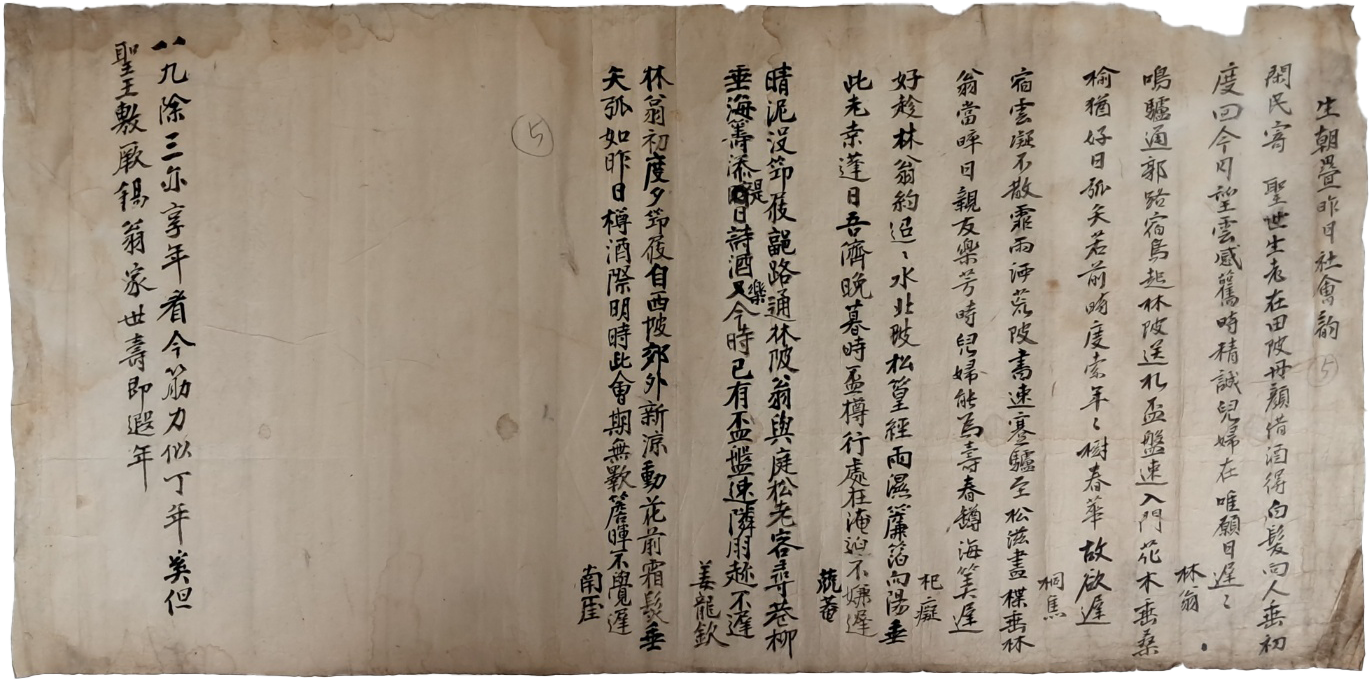 生朝疊昨日社會韵
5
閑民寄 聖世生老在田陂丹顏借酒得白髮向人垂初
度回今日望雲感舊時精誠兒婦在唯願日遲〻
林翁
鳴驢通郭路宿鳥起林陂送札盃盤速入門花木垂桑
榆猶好日弧矢若前時度索年〻樹春華故欲遲
桐焦
宿雲凝不散霏雨洒荒陂書速蹇驢至松滋畫楪垂林
翁當晬日親友樂芳時兒婦能爲壽春罇海筭遲
杞癡
好趁林翁約迢〻水北陂松篁經雨濕簾箔向陽垂
此老幸蓬日吾儕晚暮時盃樽行處在淹泊不嫌遲
菴
晴泥沒笻屐路通林陂翁與庭松老客尋巷柳
垂海籌添昰日詩酒樂今時已有盃盤速隣朋趂不遲
姜龍欽
林翁初度夕笻屐自西陂郊外新涼動花前霜髮垂
矢弧如昨日樽酒際明時此會期無歝簷暉不覺遲
南
5
八九除三亦享年看今筋力似丁年箕但
聖王敷厥錫翁家世壽即遐年